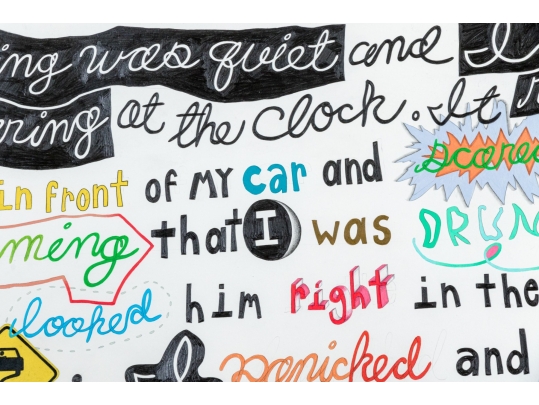 ing was quiet and I
ering at the clock. It
scared
in front of my car and
ming that I was DRUN
looked him right in the
I panicked and